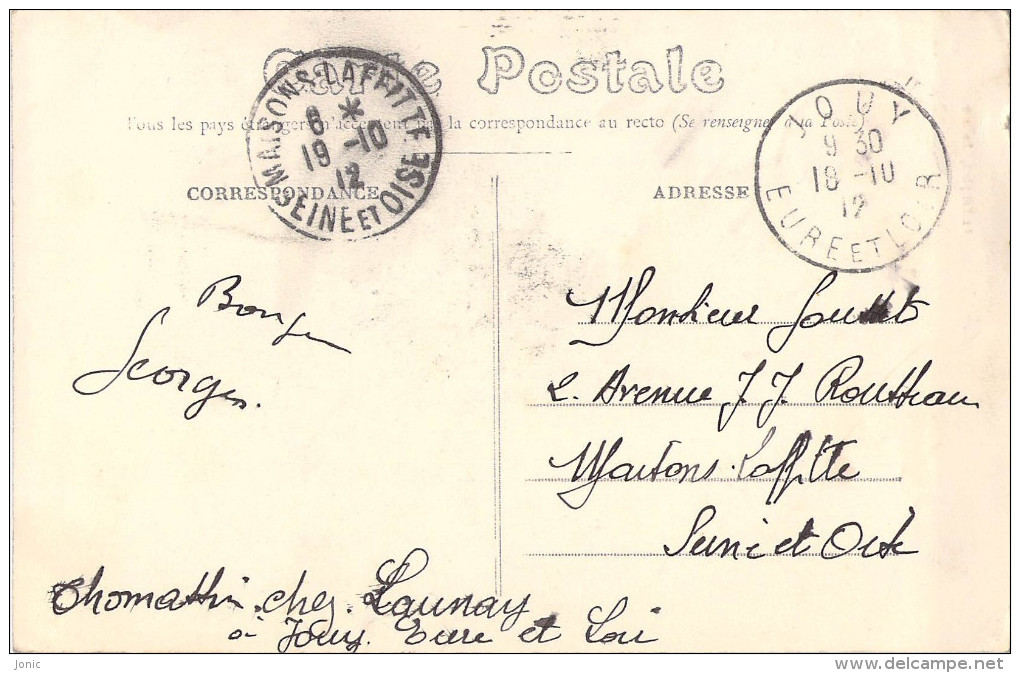 Carte Postale
Tous les pays étrangers n'acceptent pas la correspondance au recto (Se renseigner à la Poste)
MAISONS-LAFFITTE
6 *
19 -10
12
SEINE ET OISE
JOUY
9 30
18 -10
12
EURE ET LOIR
CORRESPONDANCE
ADRESSE
Georges.
Monsieur
2. Avenue J. J. Rousseau
Maisons. Laffitte
Seine et Oise
Thomassin. chez. Launay
à Jouy. Eure et Loi
Jonic
www.delcampe.net